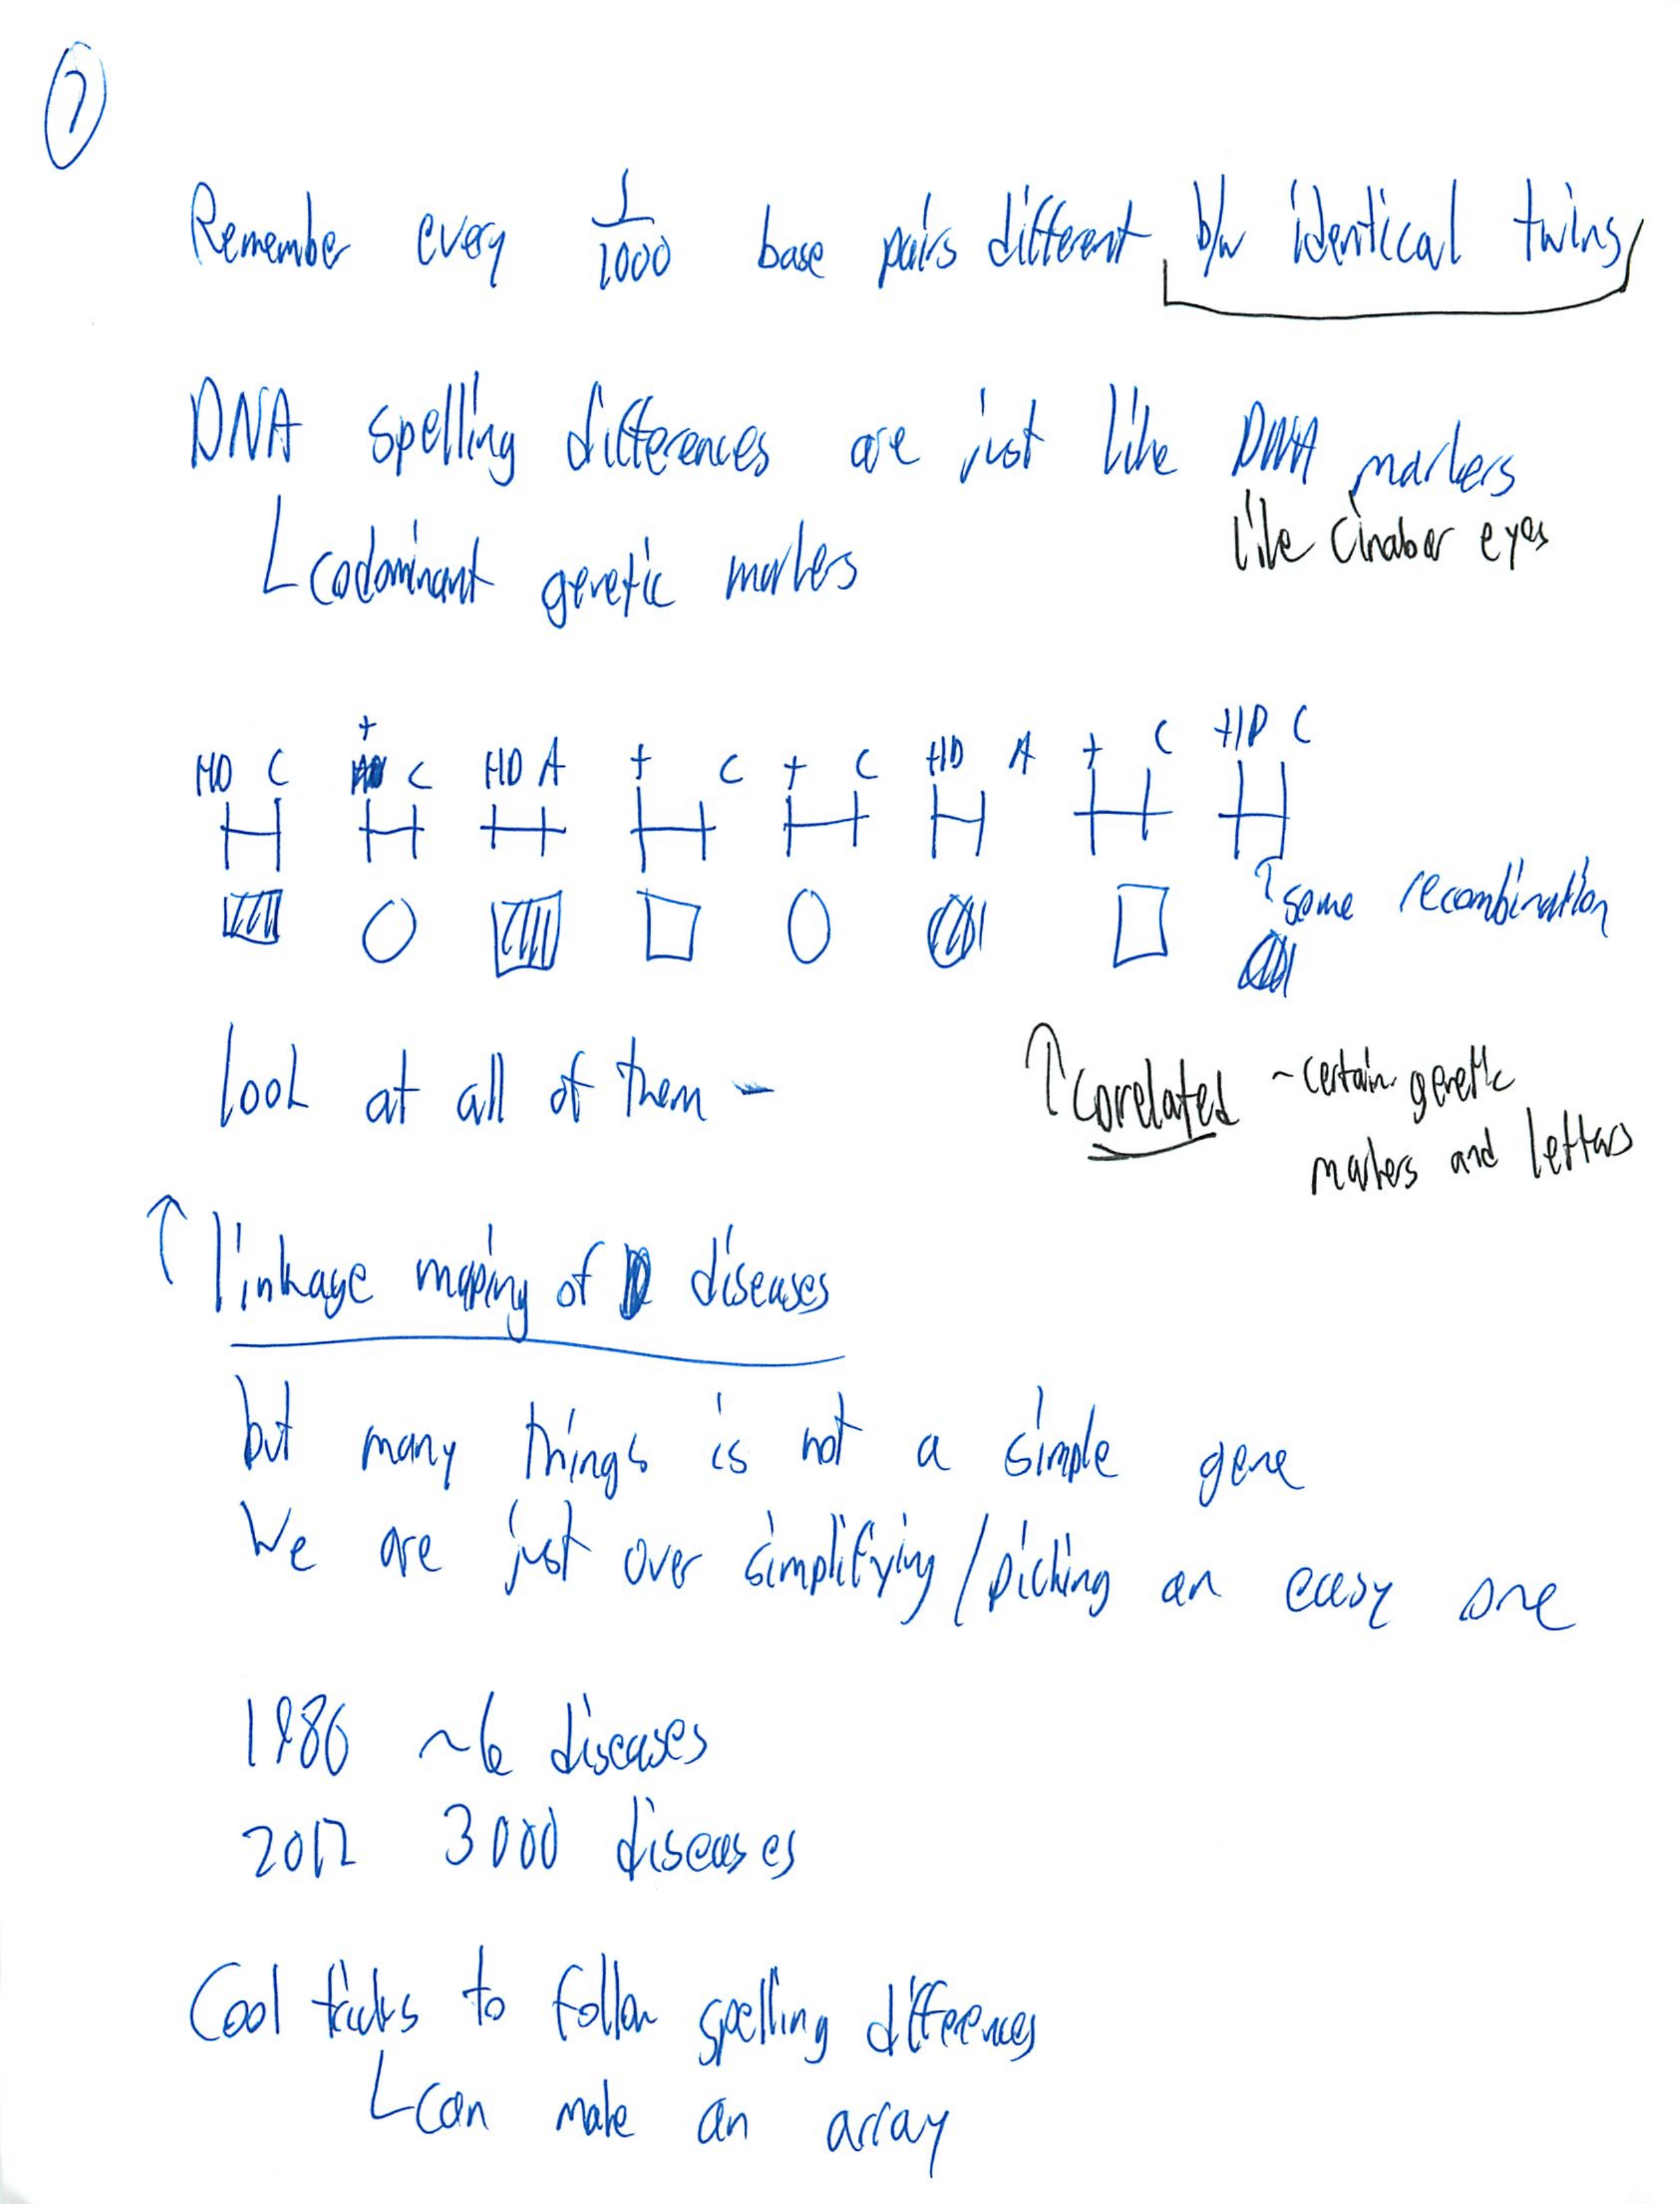 7
Remember every 1/1000 base pairs different b/w identical twins
DNA spelling differences are just like DNA markers
like cinabar eyes
codominant genetic markers
+
HD C C HD A + C + C HD A + C HD C
some recombination
look at all of them -
correlated ~ certain genetic
markers and letters
linkage maping of diseases
but many things is not a simple gene
We are just over simplifying / picking an easy one
1986 ~6 diseases
2012 3000 diseases
Cool tricks to follow spelling differences
can make an array